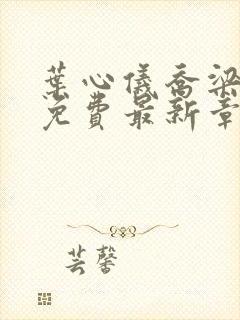 葉心儀喬梁
免費最新章
芸馨